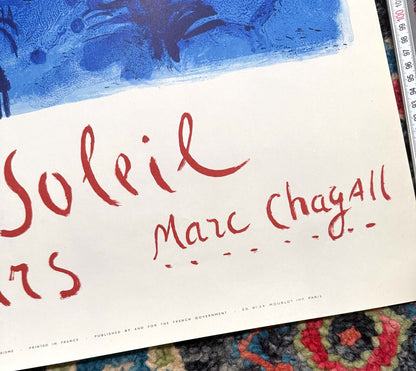 Soleil
Marc Chagall
PRINTED IN FRANCE · PUBLISHED BY AND FOR THE FRENCH GOVERNMENT · MOURLOT IMP. PARIS
100